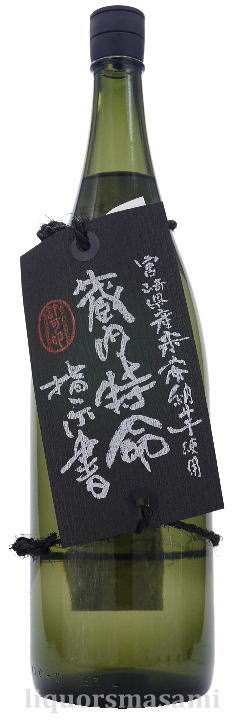 宮崎県産安納芋使用
蔵内特命
指示書
liquorsmasami